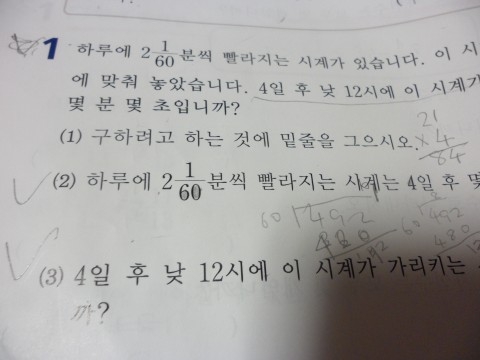 1 하루에 2 1/60분씩 빨라지는 시계가 있습니다. 이 시
에 맞춰 놓았습니다. 4일 후 낮 12시에 이 시계가
몇 분 몇 초입니까?
21
(1) 구하려고 하는 것에 밑줄을 그으시오. ×4
84
(2) 하루에 2 1/60분씩 빨라지는 시계는 4일 후 몇
60 492 60 492
480 480
12
(3) 4일 후 낮 12시에 이 시계가 가리키는
까?